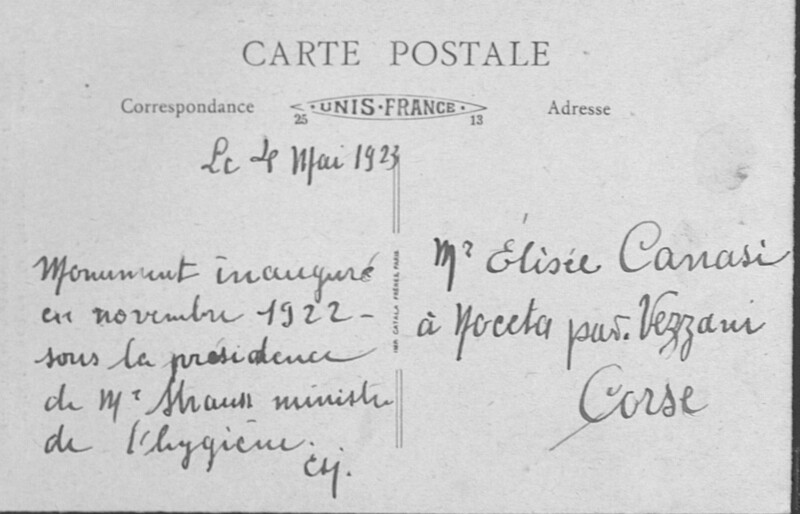 CARTE POSTALE
Correspondance
<·UNIS·FRANCE·>
25 13
Adresse
Le 4 Mai 1923
Monument inauguré
en novembre 1922 -
sous la présidence
de Mr Strauss ministre
de l'hygiène.
Mr Élisée Canasi
à Noceta par. Vezzani
Corse
IMP. CATALA FRÈRES, PARIS